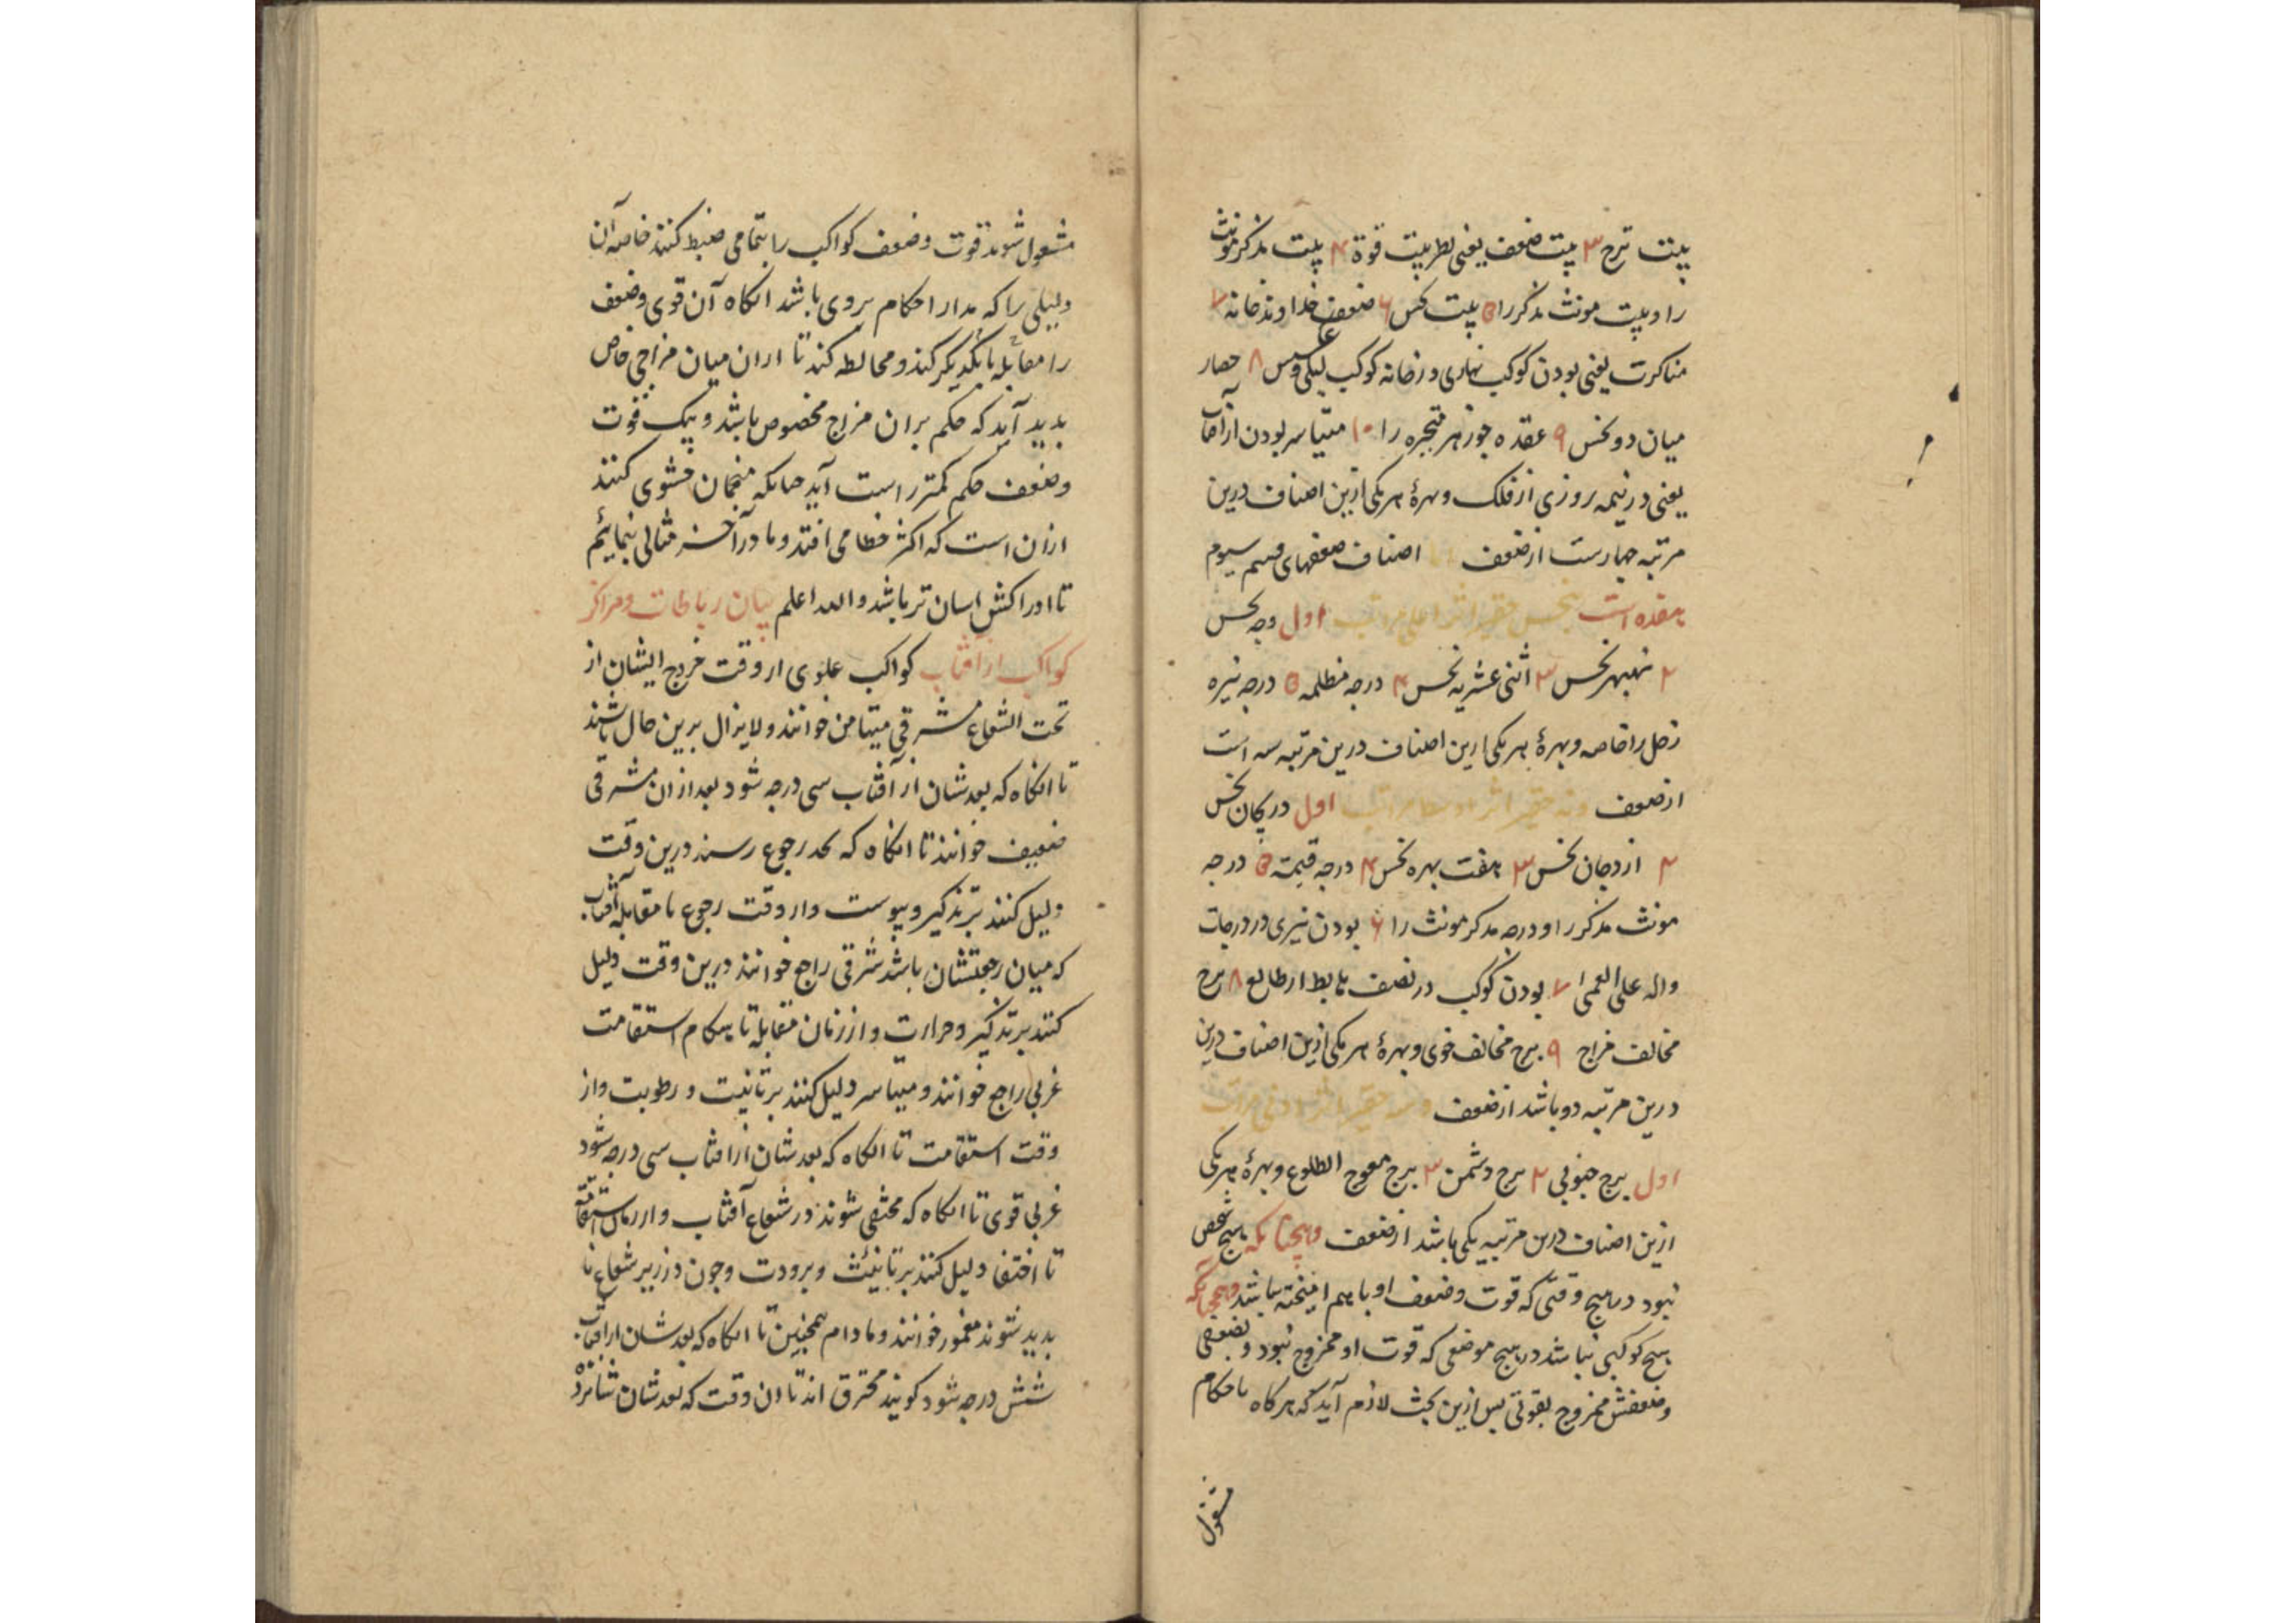 بیت ترح ۳ بیت ضعف یعنی نظر بیت قوة ۴ بیت مذکر مونث
را و بیت مونث مذکر را ۵ بیت نحس ۶ ضعف خداوند خانه ۷
مناکرت یعنی بودن کوکب نهاری در خانه کوکب لیلی و عکس ۸ حصار
میان دو نحس ۹ عقده جوزهر متحیره را ۱۰ متیاسر بودن از آفتاب
یعنی در نیمه روزی از فلک و بهرهٔ هر یکی ازین اصناف درین
مرتبه چهارست از ضعف اصناف ضعفهای قسم سیوم
هفده است پنجس حقیر اول وجه نحس
۲ نهبهر نحس ۳ اثنی عشریه نحس ۴ درجه مظلمه ۵ درجه نیره
زحل را خاصه و بهرهٔ هر یکی ازین اصناف درین مرتبه سه است
از ضعف ونه حقیر اثر اوسط مراتب اول دریجان نحس
۲ ازدجان نحس ۳ هفت بهره نحس ۴ درجه قیمه ۵ درجه
مونث مذکر را و درجه مذکر مونث را ۶ بودن نیری در درجات
داله علی العمی ۷ بودن کوکب در نصف هابط از طالع ۸ برج
مخالف مزاج ۹ برج مخالف خوی و بهرهٔ هر یکی ازین اصناف درین
درین مرتبه دو باشد از ضعف وسه حقیر اثر ادنی مراتب
اول برج جنوبی ۲ برج دشمن ۳ برج معوج الطلوع و بهرهٔ هر یکی
ازین اصناف درین مرتبه یکی باشد از ضعف و همچنانکه هیچ شخص
نبود در هیچ وقتی که قوت و ضعف او با هم امیخته نباشد و همچنانکه
هیچ کوکبی نباشد در هیچ موضعی که قوت او ممزوج نبود بضعفی
و ضعفش ممزوج بقوتی پس ازین بحث لازم آید که هرکاه باحکام
مشغول
مشغول شوند قوت و ضعف کواکب را بتمامی ضبط کنند خاصه آن
دلیلی را که مدار احکام بروی باشد انکاه آن قوی و ضعف
را مقابله با یکدیکر کند و مخالطه کند تا ازان میان مزاجی خاص
بدید آید که حکم بران مزاج مخصوص باشد و بیک قوت
و ضعف حکم کمتر راست آید چنانکه منجمان حشوی کنند
ازان است که اکثر خطا می افتد و ما در آخر مثالی بنمائیم
تا ادراکش اسان تر باشد والله اعلم بیان رباطات و مراکز
کواکب از آفتاب کواکب علوی از وقت خروج ایشان از
تحت الشعاع مشرقی میامن خوانند و لا یزال برین حال باشند
تا انکاه که بعدشان از آفتاب سی درجه شود بعد ازان مشرقی
ضعیف خوانند تا انکاه که بحد رجوع رسند درین وقت
دلیل کنند بر تذکیر و یبوست و از وقت رجوع تا مقابله آفتاب
که میان رجعتشان باشد شرقی راجع خوانند درین وقت دلیل
کنند بر تذکیر و حرارت و از زمان مقابله تا هنکام استقامت
غربی راجع خوانند و میاسر دلیل کنند بر تانیث و رطوبت و از
وقت استقامت تا انکاه که بعدشان از افتاب سی درجه شود
غربی قوی تا انکاه که مختفی شوند در شعاع آفتاب و از زمان استقامت
تا اختفا دلیل کنند بر تانیث و برودت و چون در زیر شعاع نا
بدید شوند مغمور خوانند و مادام همچنین تا انکاه که بعدشان از افتاب
شش درجه شود کویند محترق اند تا ان وقت که بعدشان شانزده